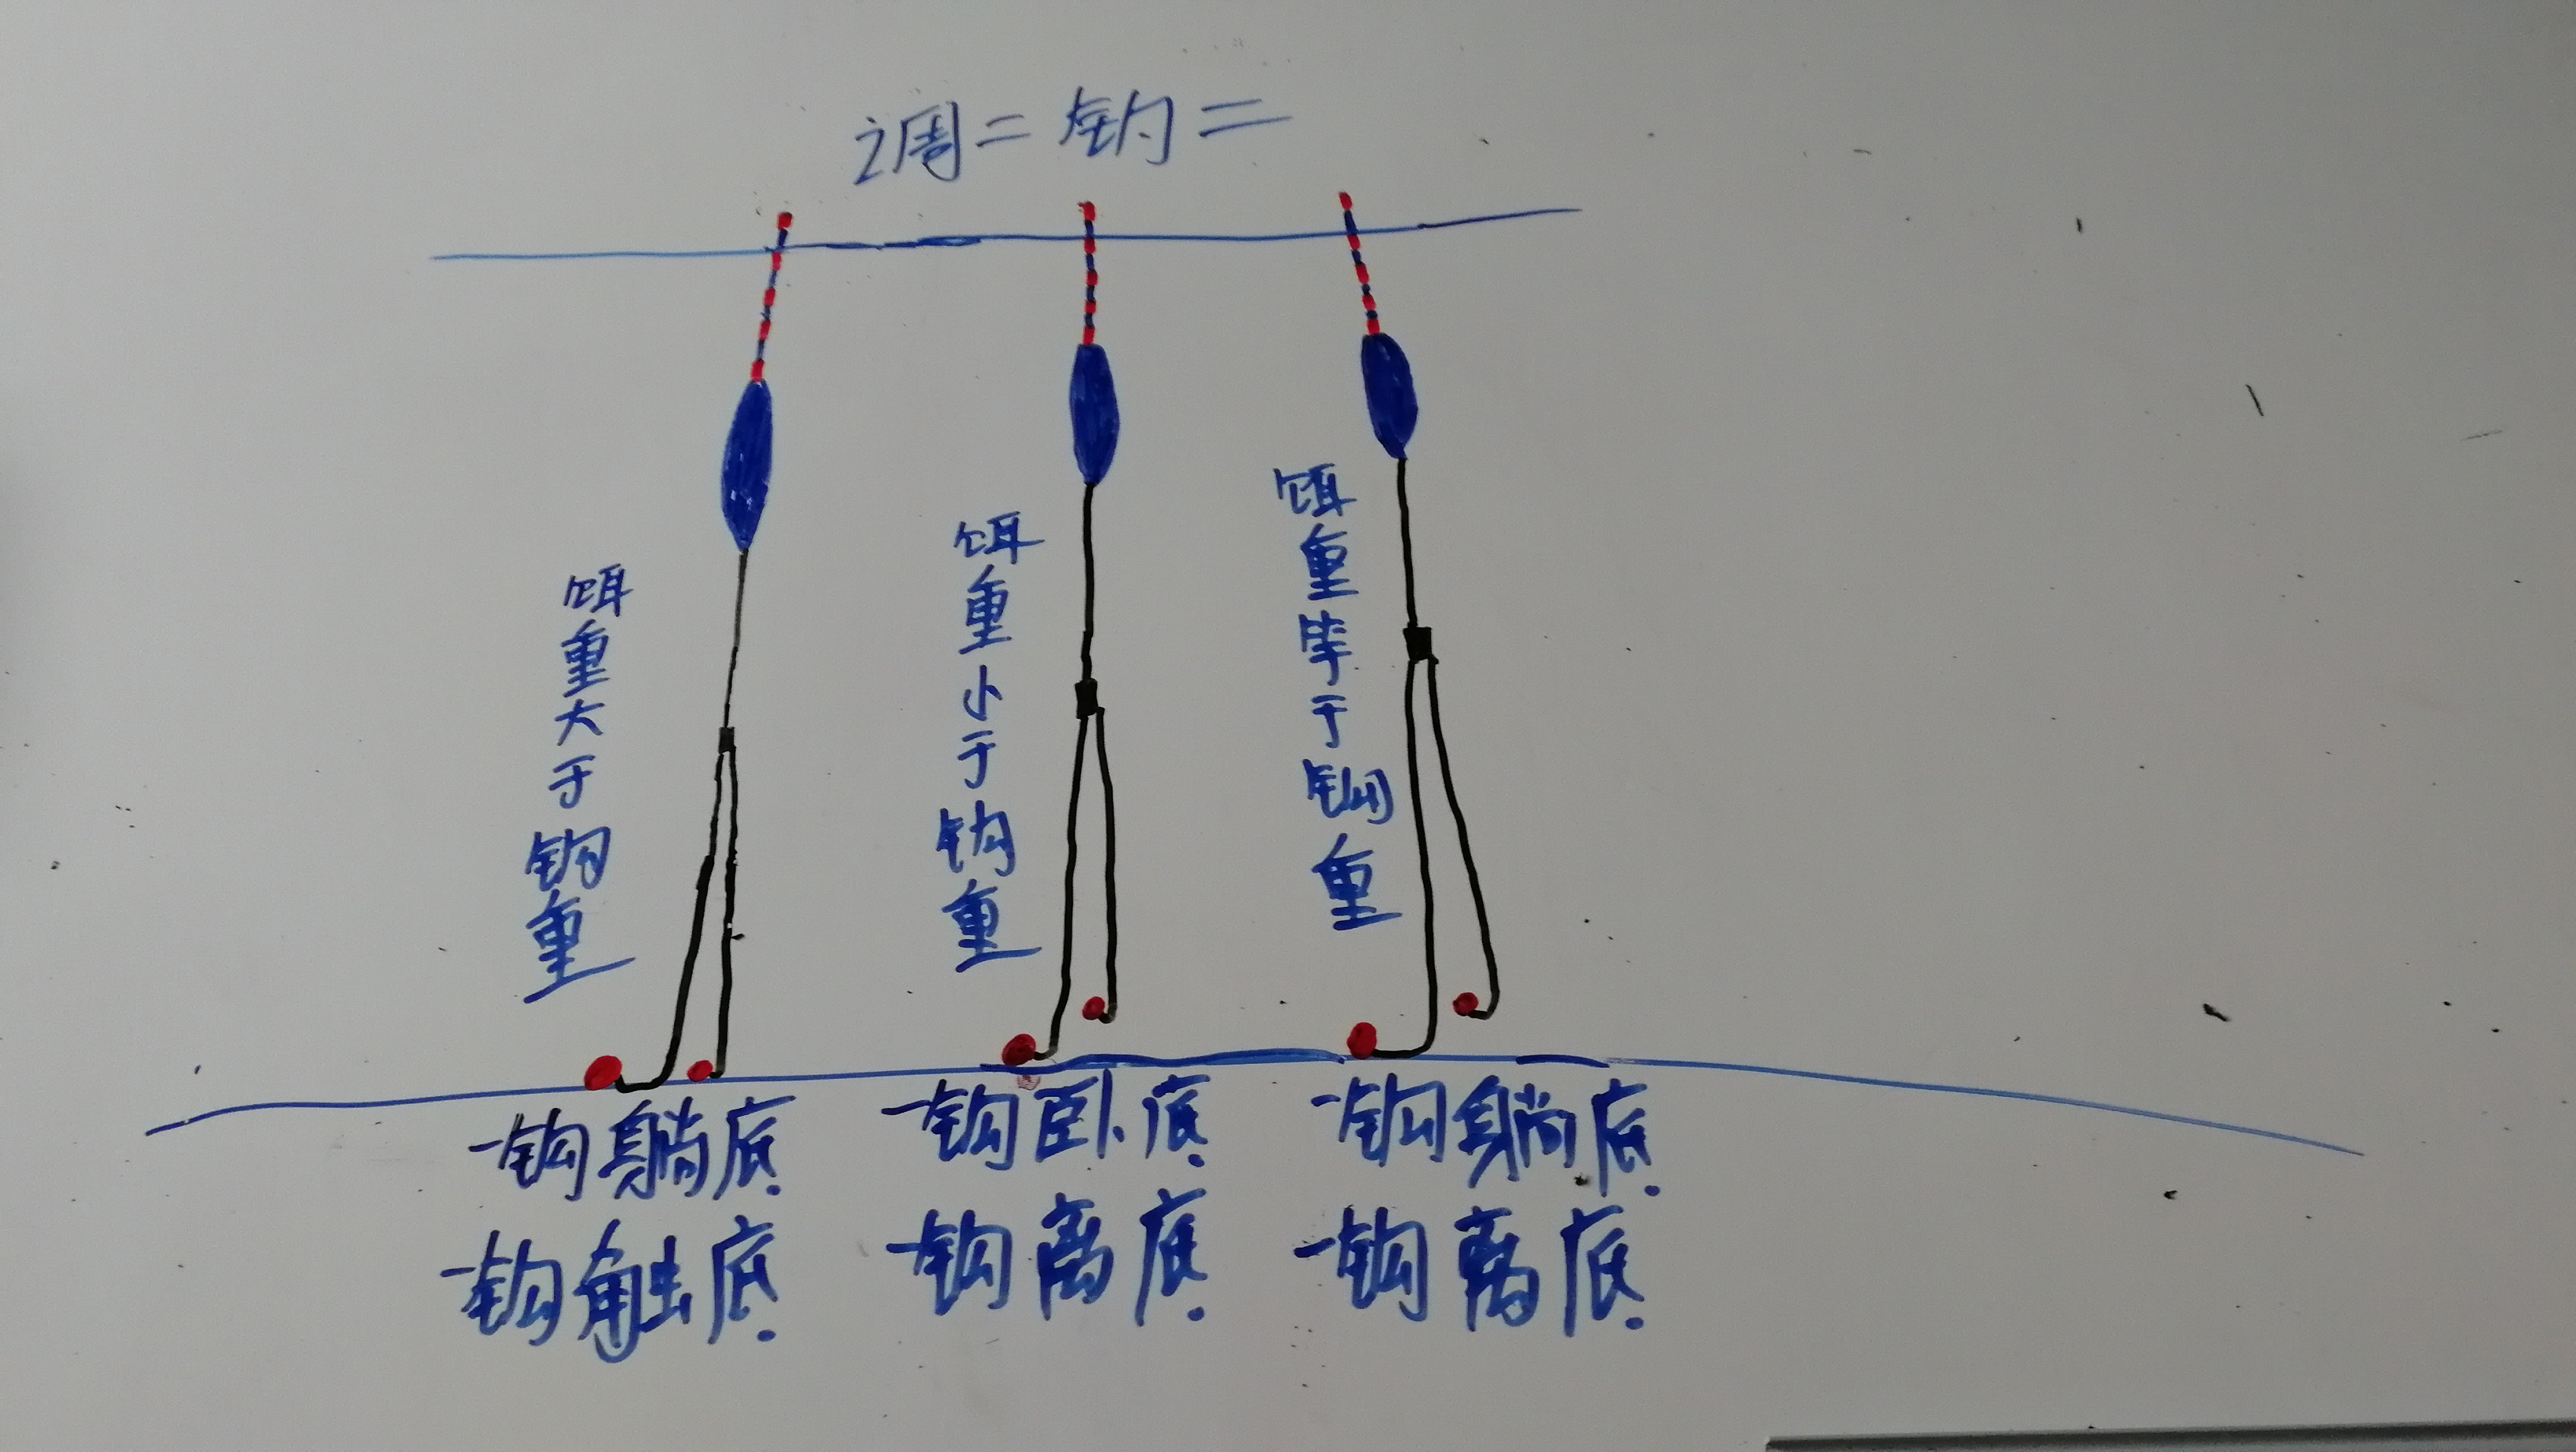 调二钓二
饵重大于钩重
饵重小于钩重
饵重等于钩重
一钩躺底.
一钩触底.
一钩卧底.
一钩离底.
一钩躺底.
一钩离底.